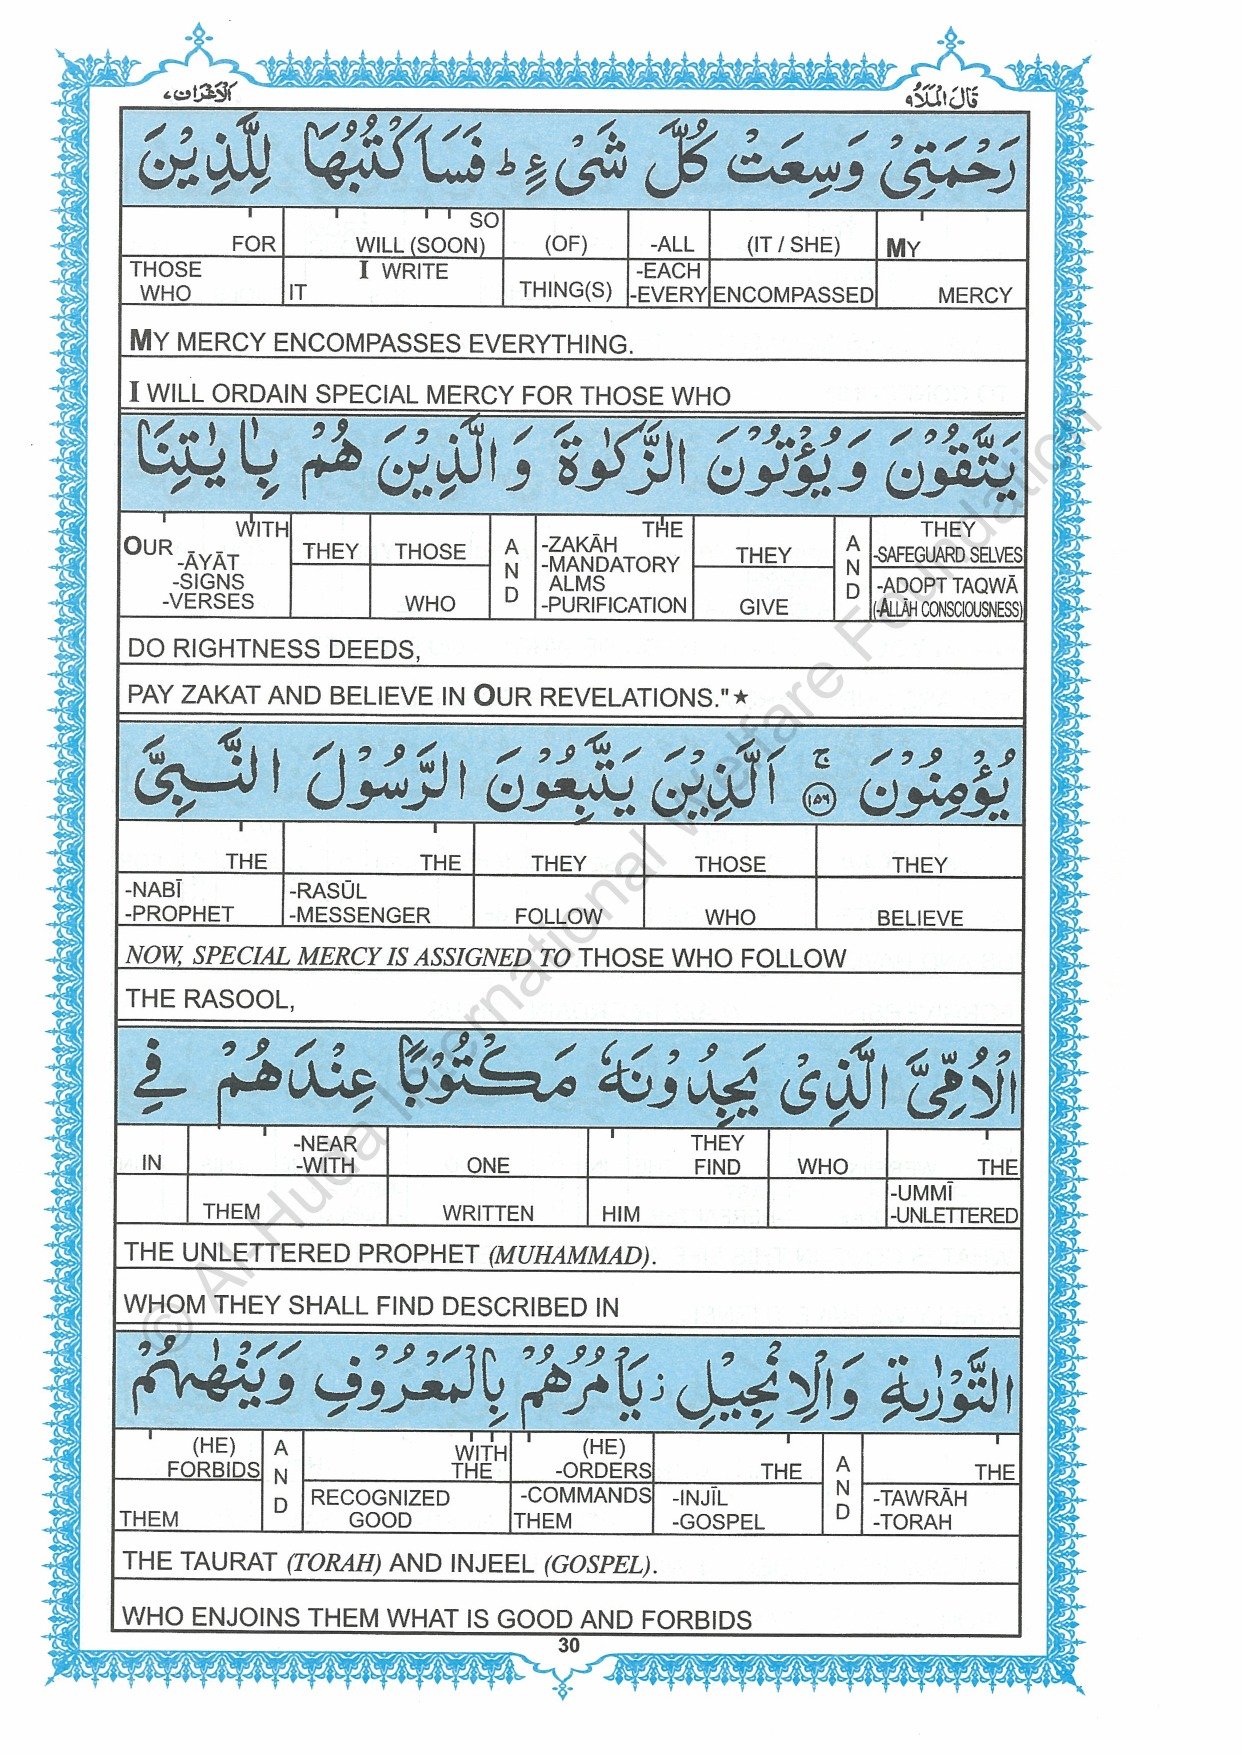 قَالَ الْمَلَاُ ۹ الْاَعْرَاف ۷
رَحْمَتِيْ وَسِعَتْ كُلَّ شَيْءٍ ط فَسَاَكْتُبُهَا لِلَّذِيْنَ
FOR WILL (SOON) SO (OF) -ALL (IT / SHE) MY
THOSE WHO IT I WRITE THING(S) -EACH -EVERY ENCOMPASSED MERCY
MY MERCY ENCOMPASSES EVERYTHING.
I WILL ORDAIN SPECIAL MERCY FOR THOSE WHO
يَتَّقُوْنَ وَيُؤْتُوْنَ الزَّكٰوةَ وَالَّذِيْنَ هُمْ بِاٰيٰتِنَا
OUR WITH THEY THOSE AND -ZAKĀH THE THEY AND THEY -SAFEGUARD SELVES
-ĀYĀT -SIGNS -VERSES WHO -MANDATORY ALMS -PURIFICATION GIVE -ADOPT TAQWĀ (-ALLĀH CONSCIOUSNESS)
DO RIGHTNESS DEEDS,
PAY ZAKAT AND BELIEVE IN OUR REVELATIONS."★
يُؤْمِنُوْنَ ج ۱۵۶ اَلَّذِيْنَ يَتَّبِعُوْنَ الرَّسُوْلَ النَّبِيَّ
THE THE THEY THOSE THEY
-NABĪ -PROPHET -RASŪL -MESSENGER FOLLOW WHO BELIEVE
NOW, SPECIAL MERCY IS ASSIGNED TO THOSE WHO FOLLOW
THE RASOOL,
الْاُمِّيَّ الَّذِيْ يَجِدُوْنَهٗ مَكْتُوْبًا عِنْدَهُمْ فِي
IN -NEAR -WITH ONE THEY FIND WHO THE
THEM WRITTEN HIM -UMMĪ -UNLETTERED
THE UNLETTERED PROPHET (MUHAMMAD).
WHOM THEY SHALL FIND DESCRIBED IN
التَّوْرٰىةِ وَالْاِنْجِيْلِ ز يَاْمُرُهُمْ بِالْمَعْرُوْفِ وَيَنْهٰىهُمْ
(HE) FORBIDS AND WITH THE (HE) -ORDERS THE AND THE
THEM RECOGNIZED GOOD -COMMANDS THEM -INJĪL -GOSPEL -TAWRĀH -TORAH
THE TAURAT (TORAH) AND INJEEL (GOSPEL).
WHO ENJOINS THEM WHAT IS GOOD AND FORBIDS
30
© Al-Huda International Welfare Foundation